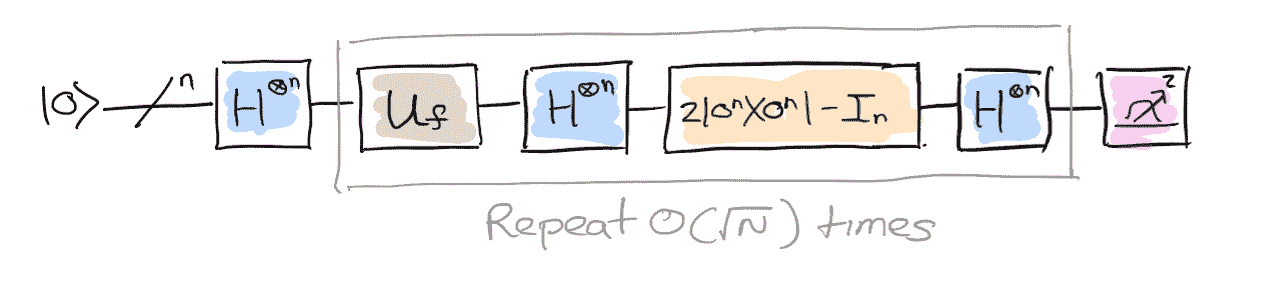 |0⟩ n H⊗n U_f H⊗n 2|0ⁿ⟩⟨0ⁿ| - Iₙ H⊗n z
Repeat O(√N) times